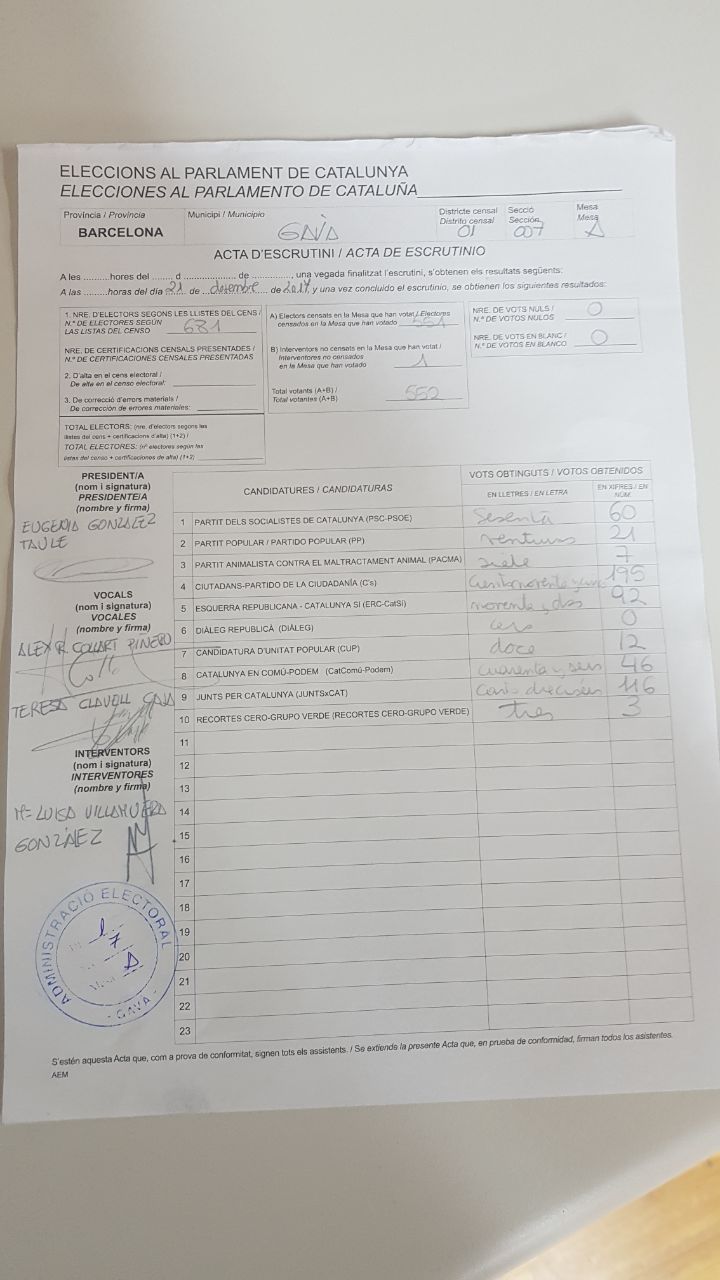 ELECCIONS AL PARLAMENT DE CATALUNYA
ELECCIONES AL PARLAMENTO DE CATALUÑA
Província / Provincia
BARCELONA
Municipi / Municipio
GAVÀ
Districte censal
Distrito censal
01
Secció
Sección
007
Mesa
Mesa
A
ACTA D'ESCRUTINI / ACTA DE ESCRUTINIO
A les .........hores del ....... d ................... de ............., una vegada finalitzat l'escrutini, s'obtenen els resultats següents:
A las .........horas del día 21 de ...diciembre... de 2017, y una vez concluido el escrutinio, se obtienen los siguientes resultados:
1. NRE. D'ELECTORS SEGONS LES LLISTES DEL CENS /
N.º DE ELECTORES SEGÚN
LAS LISTAS DEL CENSO 681
NRE. DE CERTIFICACIONS CENSALS PRESENTADES /
N.º DE CERTIFICACIONES CENSALES PRESENTADAS
2. D'alta en el cens electoral /
De alta en el censo electoral:
3. De correcció d'errors materials /
De corrección de errores materiales:
TOTAL ELECTORS: (nre. d'electors segons les
llistes del cens + certificacions d'alta) (1+2) /
TOTAL ELECTORES: (nº electores según las
listas del censo + certificaciones de alta) (1+2)
A) Electors censats en la Mesa que han votat / Electores
censados en la Mesa que han votado 551
B) Interventors no censats en la Mesa que han votat /
Interventores no censados
en la Mesa que han votado 1
Total votants (A+B) /
Total votantes (A+B) 552
NRE. DE VOTS NULS /
N.º DE VOTOS NULOS 0
NRE. DE VOTS EN BLANC /
N.º DE VOTOS EN BLANCO 0
PRESIDENT/A
(nom i signatura)
PRESIDENTE/A
(nombre y firma)
EUGENIA GONZALEZ
TAULE
VOCALS
(nom i signatura)
VOCALES
(nombre y firma)
ALEX R. COLLART PIÑERO
TERESA CLAVELL
INTERVENTORS
(nom i signatura)
INTERVENTORES
(nombre y firma)
Mª LUISA
GONZÁLEZ
CANDIDATURES / CANDIDATURAS
VOTS OBTINGUTS / VOTOS OBTENIDOS
EN LLETRES / EN LETRA
EN XIFRES / EN NÚM.
1 PARTIT DELS SOCIALISTES DE CATALUNYA (PSC-PSOE) Sesenta 60
2 PARTIT POPULAR / PARTIDO POPULAR (PP) ventiuno 21
3 PARTIT ANIMALISTA CONTRA EL MALTRACTAMENT ANIMAL (PACMA) siete 7
4 CIUTADANS-PARTIDO DE LA CIUDADANÍA (C's) 195
5 ESQUERRA REPUBLICANA - CATALUNYA SÍ (ERC-CatSí) noventa y dos 92
6 DIÀLEG REPUBLICÀ (DIÀLEG) cero 0
7 CANDIDATURA D'UNITAT POPULAR (CUP) doce 12
8 CATALUNYA EN COMÚ-PODEM (CatComú-Podem) cuarenta y seis 46
9 JUNTS PER CATALUNYA (JUNTSxCAT) 116
10 RECORTES CERO-GRUPO VERDE (RECORTES CERO-GRUPO VERDE) tres 3
11
12
13
14
15
16
17
18
19
20
21
22
23
ADMINISTRACIÓ ELECTORAL
- GAVÀ -
S'estén aquesta Acta que, com a prova de conformitat, signen tots els assistents. / Se extiende la presente Acta que, en prueba de conformidad, firman todos los asistentes.
AEM